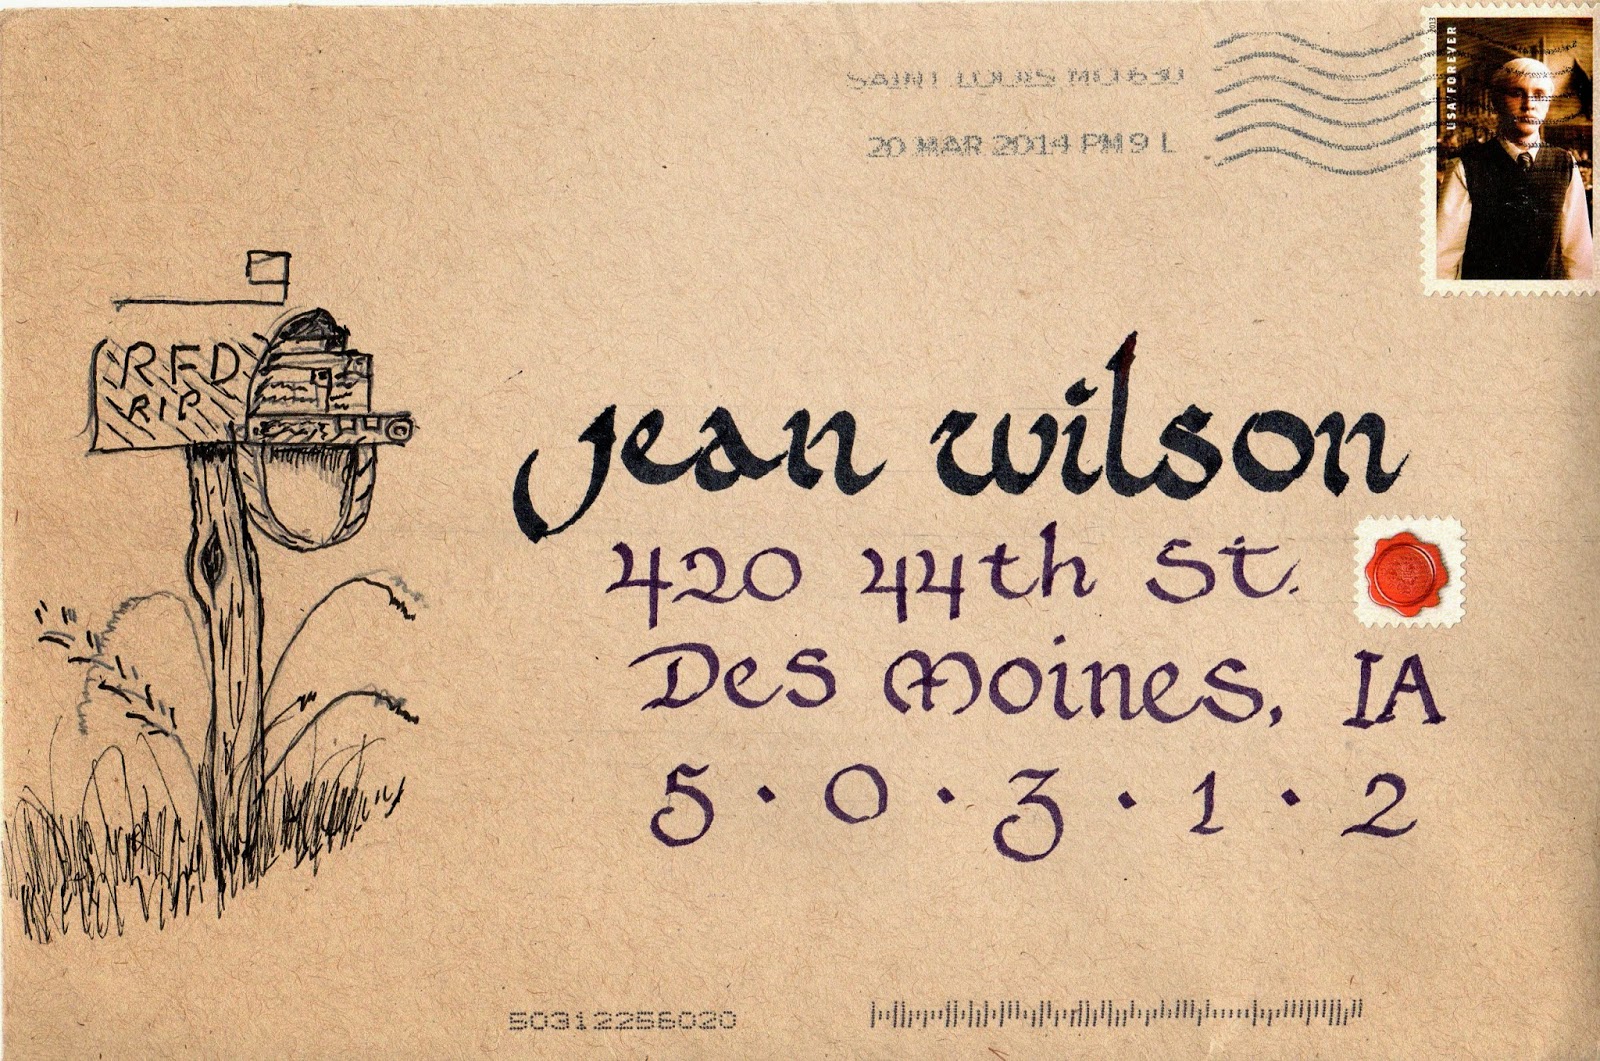 SAINT LOUIS MO 630
20 MAR 2014 PM 9 L
2013
USA/FOREVER
RFD
RIP
Jean Wilson
420 44th St.
Des Moines, IA
5·0·3·1·2
50312256020